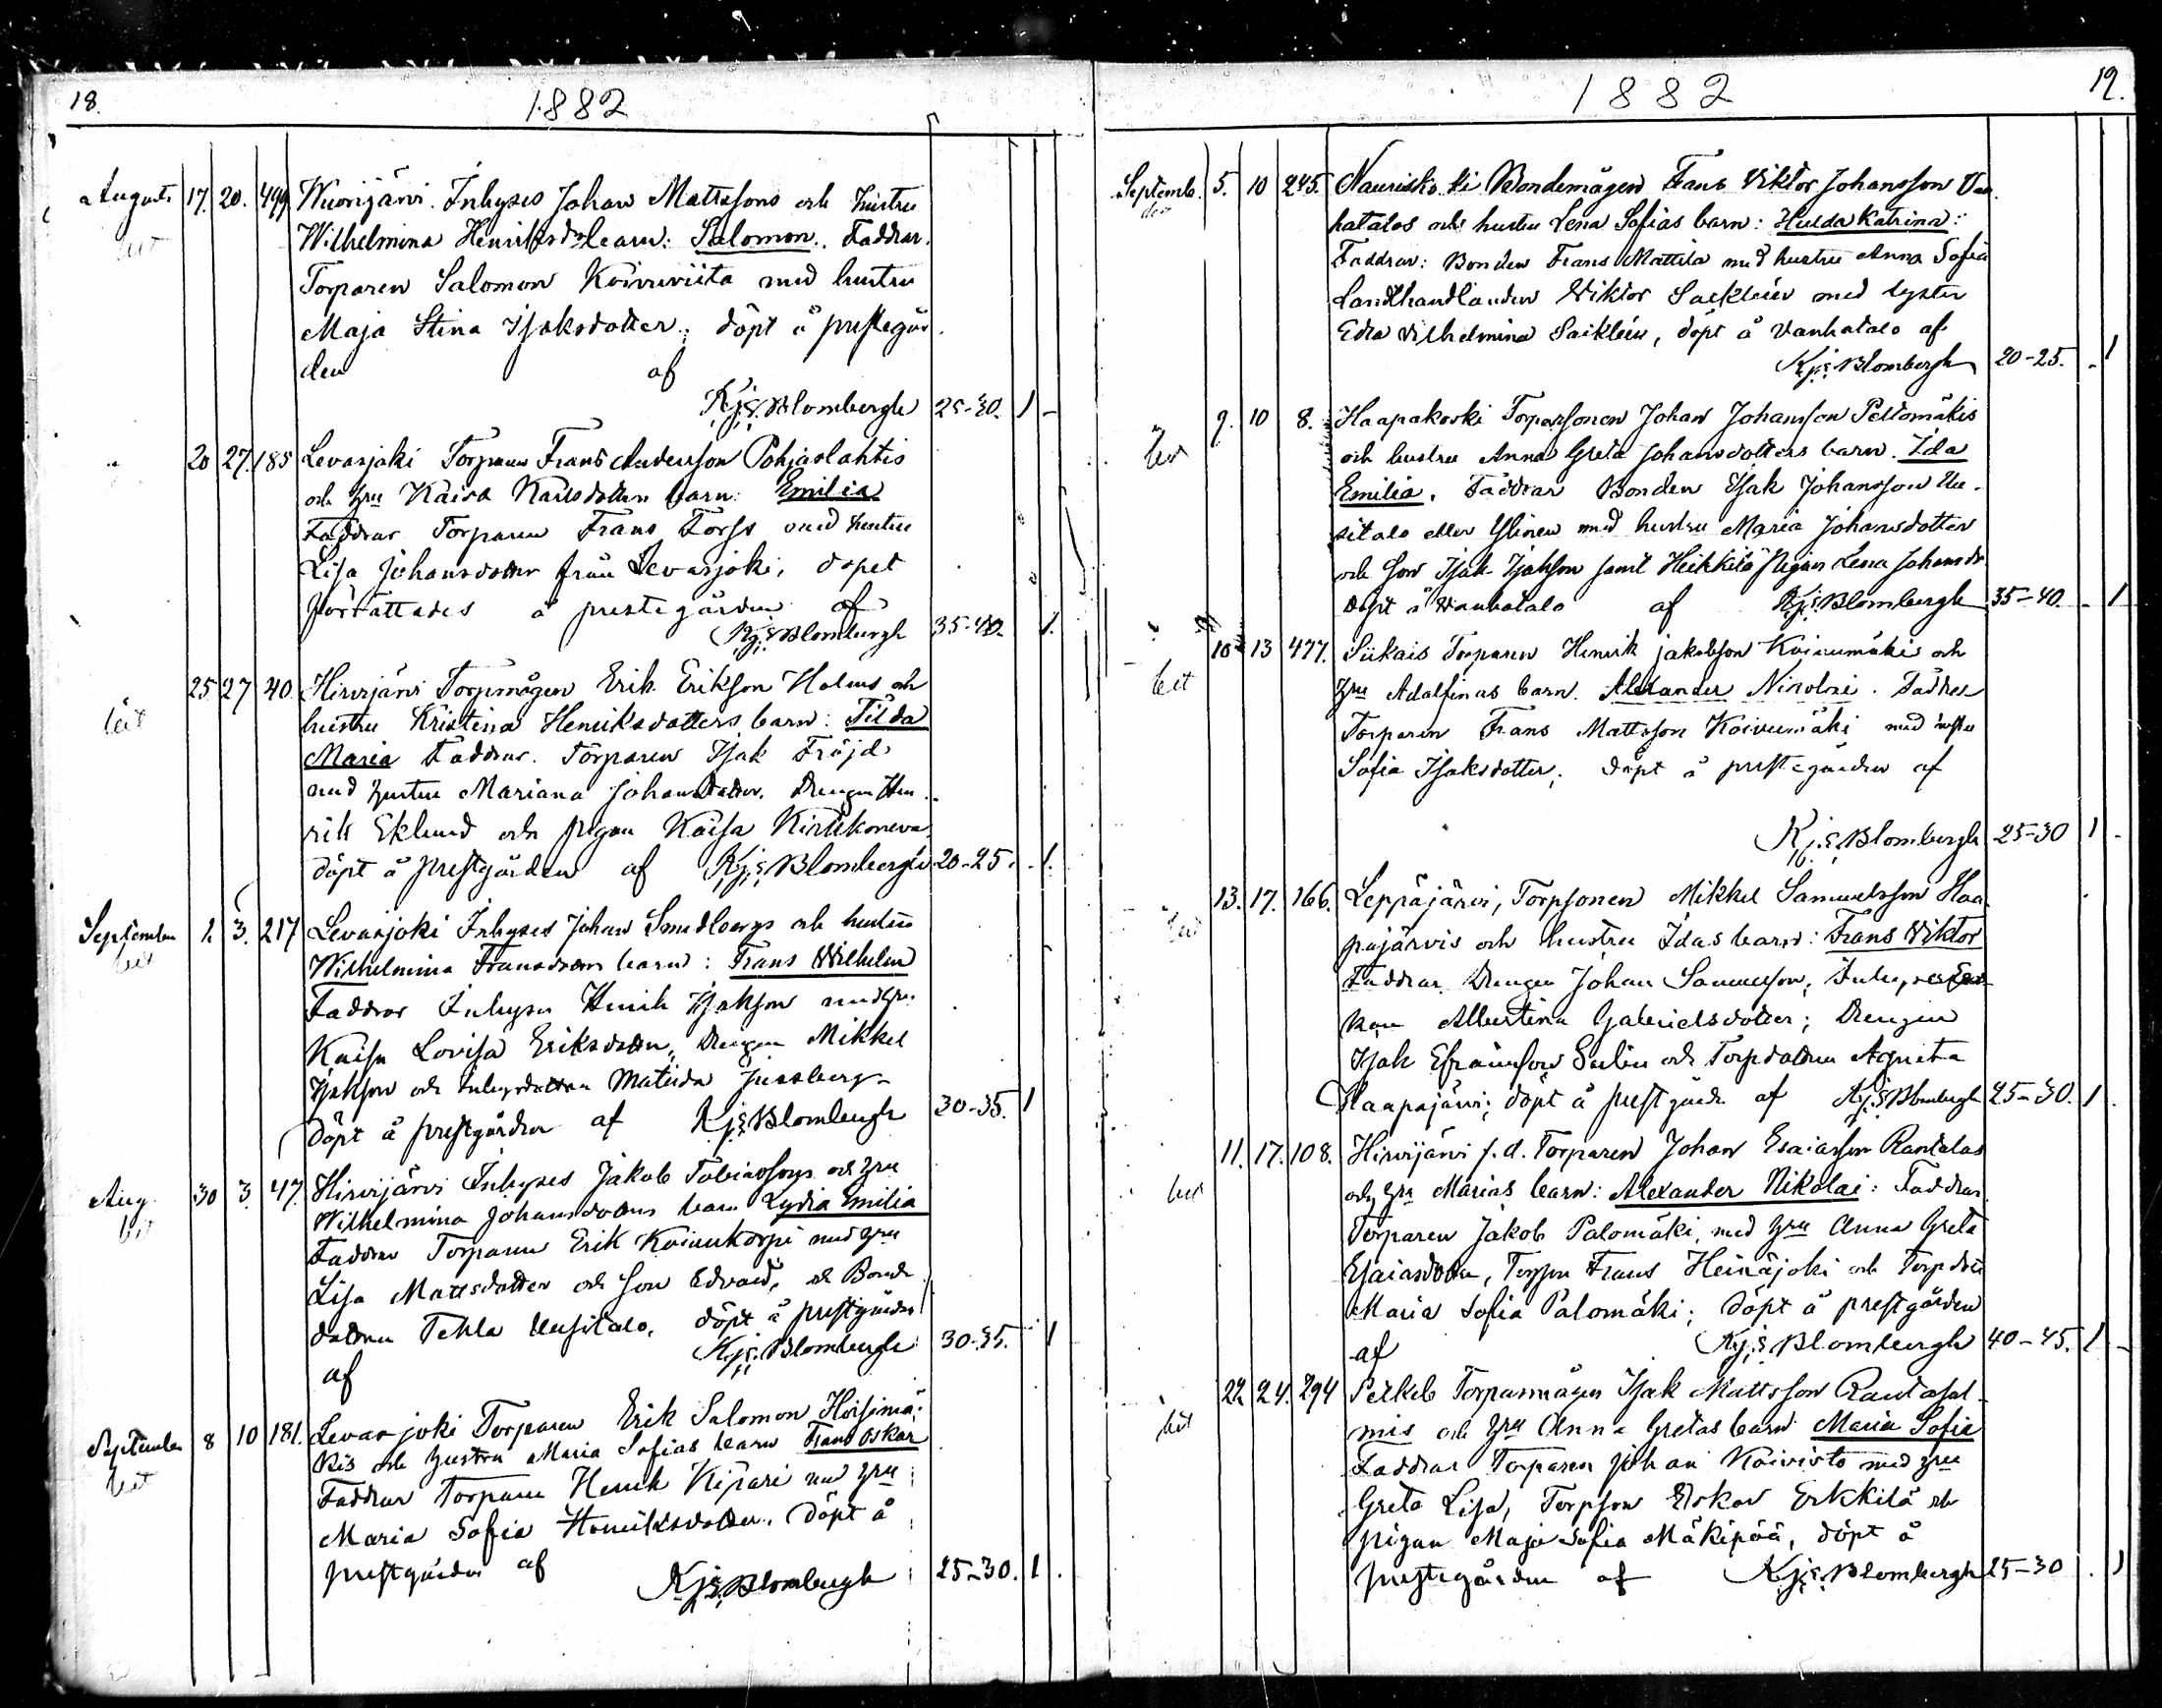 18.
1882
Augusti 17. 20. 499 Wuorijärvi Inhyses Johan Mattssons och hustru
Wilhelmina Henriksdrs barn: Salomon. Faddrar.
Torparen Salomon Koivuviita med hustru
Maja Stina Isaksdotter; döpt å prestegår
den af
Kj:S:Blombergh 25-30. 1 -
20 27. 185 Levasjoki Torparen Frans Andersson Pohjaslahtis
och hru Kaisa Karlsdotters barn: Emilia
Faddrar Torparen Frans Forss med hustru
Lisa Johansdotter från Levasjoki, dopet
förrättades å prestegården af
Kj:S:Blombergh 35-40. 1.
25 27 40. Hirvijärvi Torpmågen Erik Erikson Holms och
hustru Kristina Henriksdotters barn: Tilda
Maria Faddrar. Torparen Isak Fröjd
med hustru Mariana Johansdotter. Drengen Hen-
rik Eklund och pigan Kaisa
döpt å prestgården af Kj:S:Blombergh 20-25. - 1.
September 1. 3. 217 Levasjoki Inhyses Johan Smedbergs och hustru
Wilhelmina Fransdotters barn: Frans Wilhelm
Faddrar Inhyses Henrik Isakson med hru
Kaisa Lovisa Eriksdotter, Drengen Mikkel
Isakson och Inhysdottren Matilda Jussberg-
döpt å prestgården af Kj:S:Blombergh 30-35. 1
Aug. 30 3. 47. Hirvijärvi Inhyses Jakob Tobiassons och hru
Wilhelmina Johansdotters barn Lydia Emilia
Faddrar Torparen Erik Koivukorpi med hru
Lisa Mattsdotter och son Edvard, och Bonde
dottren Tekla Uusitalo, döpt å prestgården
af Kj:S:Blombergh 30-35. 1
September 8 10 181. Levasjoki Torparen Erik Salomon Hoisimä-
kis och hustru Maria Sofias barn Frans Oskar
Faddrar Torparen Henrik Kipari med hru
Maria Sofia Henriksdotter. Döpt å
prestgården af Kj:S:Blombergh 25-30. 1.
19.
1882
Septemb. 5. 10 245. Bondemågen Frans Viktor Johansson Van
hatalos och hustru Lena Sofias barn: Hulda Katrina:
Faddrar: Bonden Frans Mattila med hustru Anna Sofia
Landthandlanden Viktor med syster
Edla Vilhelmina döpt å Vanhatalo af
Kj:S:Blombergh 20-25. - 1
9. 10 8. Haapakoski Torparsonen Johan Johansson Peltomäkis
och hustru Anna Greta Johansdotters barn. Ida
Emilia. Faddrar Bonden Isak Johansson Uu-
sitalo eller Ylinen med hustru Maria Johansdotter
och son Isak Isakson samt Heikkilä pigan Lena Johansdr
döpt å Vanhatalo af Kj:S:Blombergh 35-40. - 1
10 13 477. Siikais Torparen Henrik Jakobson Koivumäkis och
hru Adolfinas barn. Alexander Nikolai. Faddrar
Torparen Frans Mattsson Koivumäki med hustru
Sofia Isaksdotter, döpt å prestegården af
Kj:S:Blombergh 25-30 1 -
13. 17. 166. Leppäjärvi, Torpsonen Mikkel Samuelsson Haa
pajärvis och hustru Idas barn: Frans Viktor
Faddrar Drengen Johan Samuelson, Inhyses En-
kan Albertina Gabrielsdotter; Drengen
Isak Efraimson och Torpdottren Agneta
Haapajärvi; döpt å prestgården af Kj:S:Blombergh 25-30. 1
11. 17. 108. Hirvijärvi f.d. Torparen Johan Esaiasson Rantalas
och hru Marias barn: Alexander Nikolai: Faddrar
Torparen Jakob Palomäki, med hru Anna Greta
Esaiasdotter, Torpson Frans Heinäjoki och Torpdotter
Maria Sofia Palomäki; Döpt å prestgården
af Kj:S:Blombergh 40-45. 1 -
22. 24. 294 Torparmågen Isak Mattsson Rantasal-
mis och hru Anna Gretas barn Maria Sofia
Faddrar Torparen Johan Koivisto med hru
Greta Lisa, Torpson Oskar Erkkilä och
pigan Maja Sofia Mäkipää, döpt å
prestegården af Kj:S:Blombergh 25-30 . 1